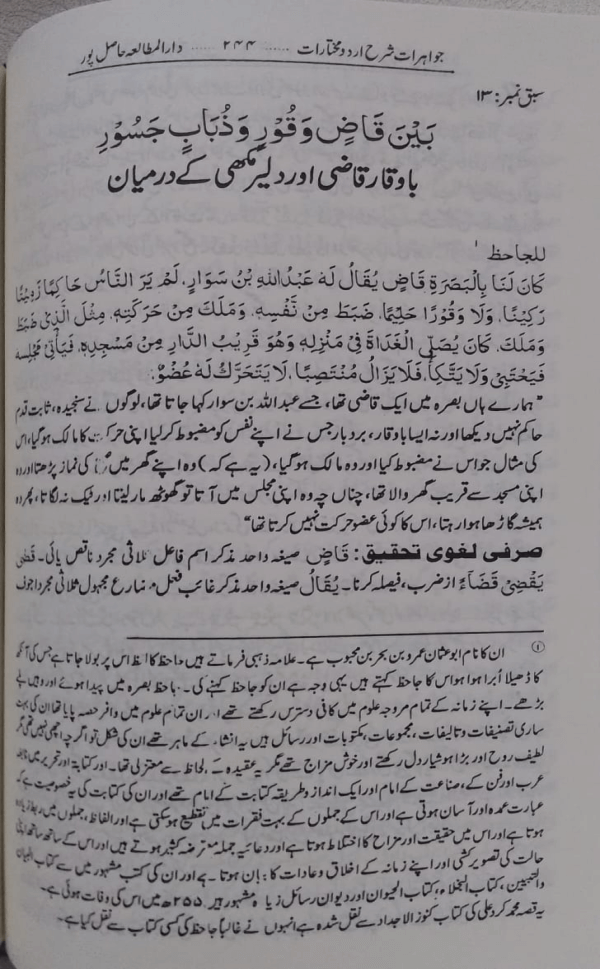 جواہرات شرح اردو مختارات ...... ۲۴۴ ...... دارالمطالعہ حاصل پور
سبق نمبر: ۱۳
بَيْنَ قَاضٍ وَقُوْرٍ وَذُبَابٍ جَسُوْرٍ
باوقار قاضی اور دلیر مکھی کے درمیان
للجاحظ ۱
كَانَ لَنَا بِالْبَصَرَةِ قَاضٍ يُقَالُ لَهٗ عَبْدُاللّٰهِ بْنُ سَوَارٍ، لَمْ يَرَ النَّاسُ حَاكِمًا زَمِيْتًا
رَكِيْنًا، وَلَا وَقُوْرًا حَلِيْمًا، ضَبَطَ مِنْ نَّفْسِهٖ، وَمَلَكَ مِنْ حَرَكَتِهٖ، مِثْلَ الَّذِيْ ضَبَطَ
وَمَلَكَ، كَانَ يُصَلِّي الْغَدَاةَ فِيْ مَنْزِلِهٖ وَهُوَ قَرِيْبُ الدَّارِ مِنْ مَسْجِدِهٖ، فَيَأْتِيْ مَجْلِسَهٗ
فَيَحْتَبِيْ وَلَا يَتَّكِأُ، فَلَا يَزَالُ مُنْتَصِبًا، لَا يَتَحَرَّكُ لَهٗ عُضْوٌ:
”ہمارے ہاں بصرہ میں ایک قاضی تھا، جسے عبداللہ بن سوار کہا جاتا تھا، لوگوں نے سنجیدہ، ثابت قدم
حاکم نہیں دیکھا اور نہ ایسا باوقار، بردبار جس نے اپنے نفس کو مضبوط کرلیا اپنی حرکت کا مالک ہوگیا، اس
کی مثال جو اس نے مضبوط کیا اور وہ مالک ہوگیا، (یہ ہے کہ) وہ اپنے گھر میں کی نماز پڑھتا اور وہ
اپنی مسجد سے قریب گھر والا تھا، چناں چہ وہ اپنی مجلس میں آتا تو گھوٹھ مار لیتا اور ٹیک نہ لگاتا، پھر وہ
ہمیشہ گاڑھا ہوا رہتا، اس کا کوئی عضو حرکت نہیں کرتا تھا“
صرفی لغوی تحقیق: قَاضٍ صیغہ واحد مذکر اسم فاعل ثلاثی مجرد ناقص یائی۔ قَضٰى
يَقْضِيْ قَضَاءً از ضرب، فیصلہ کرنا۔ يُقَالُ صیغہ واحد مذکر غائب فعل مضارع مجہول ثلاثی مجرد اجوف
① ان کا نام ابوعثمان عمرو بن بحر بن محبوب ہے۔ علامہ ذہبی فرماتے ہیں جاحظ کا لفظ اس پر بولا جاتا ہے جس کی آنکھ
کا ڈھیلا اُبرا ہوا ہو اس کا جاحظ کہتے ہیں یہی وجہ ہے ان کو جاحظ کہنے کی۔ جاحظ بصرہ میں پیدا ہوئے اور وہیں پلے
بڑھے۔ اپنے زمانہ کے تمام مروجہ علوم میں کافی دسترس رکھتے تھے اور ان تمام علوم میں وافر حصہ پایا تھا ان کی بہت
ساری تصنیفات و تالیفات، مجموعات، مکتوبات اور رسائل ہیں یہ انشاء کے ماہر تھے ان کی شکل تو اگرچہ اچھی نہیں تھی مگر
لطیف روح اور بڑا ہوشیار دل رکھتے اور خوش مزاج تھے مگر یہ عقیدہ کے لحاظ سے معتزلی تھا۔ اور کتابۃ اور تحریر میں
عرب اور فن کے، صناعت کے امام اور ایک انداز و طریقہ کتابت کے امام تھے اور ان کی کتابت کی یہ خصوصیت ہے کہ
عبارت عمدہ اور آسان ہوتی ہے اور اس کے جملوں کے بہت فقرات میں تقطیع ہوسکتی ہے اور الفاظ، جملوں میں ربط زیادہ
ہوتا ہے اور اس میں حقیقت اور مزاح کا اختلاط ہوتا ہے اور دعائیہ جملہ معترضہ کثیر ہوتے ہیں اور اس کے ساتھ ساتھ اپنی
حالت کی تصویر کشی اور اپنے زمانہ کے اخلاق و عادات کا بیان ہوتا ہے اور ان کی کتب مشہور میں سے کتاب البیان
والتبیین، کتاب البخلاء، کتاب الحیوان اور دیوان رسائل زیادہ مشہور ہیں ۲۵۵ھ میں اس کی وفات ہوئی ہے۔
یہ قصہ محمد کرد علی کی کتاب کنوز الاجداد سے نقل شدہ ہے انہوں نے غالباً جاحظ کی کسی کتاب سے نقل کیا۔